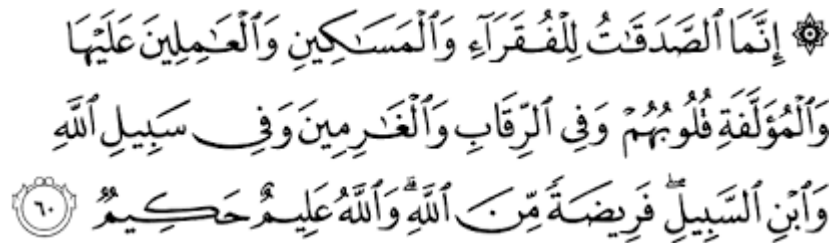 ۞ إِنَّمَا ٱلصَّدَقَـٰتُ لِلْفُقَرَآءِ وَٱلْمَسَـٰكِينِ وَٱلْعَـٰمِلِينَ عَلَيْهَا
وَٱلْمُؤَلَّفَةِ قُلُوبُهُمْ وَفِى ٱلرِّقَابِ وَٱلْغَـٰرِمِينَ وَفِى سَبِيلِ ٱللَّهِ
وَٱبْنِ ٱلسَّبِيلِ ۖ فَرِيضَةً مِّنَ ٱللَّهِ ۗ وَٱللَّهُ عَلِيمٌ حَكِيمٌ ۝٦٠